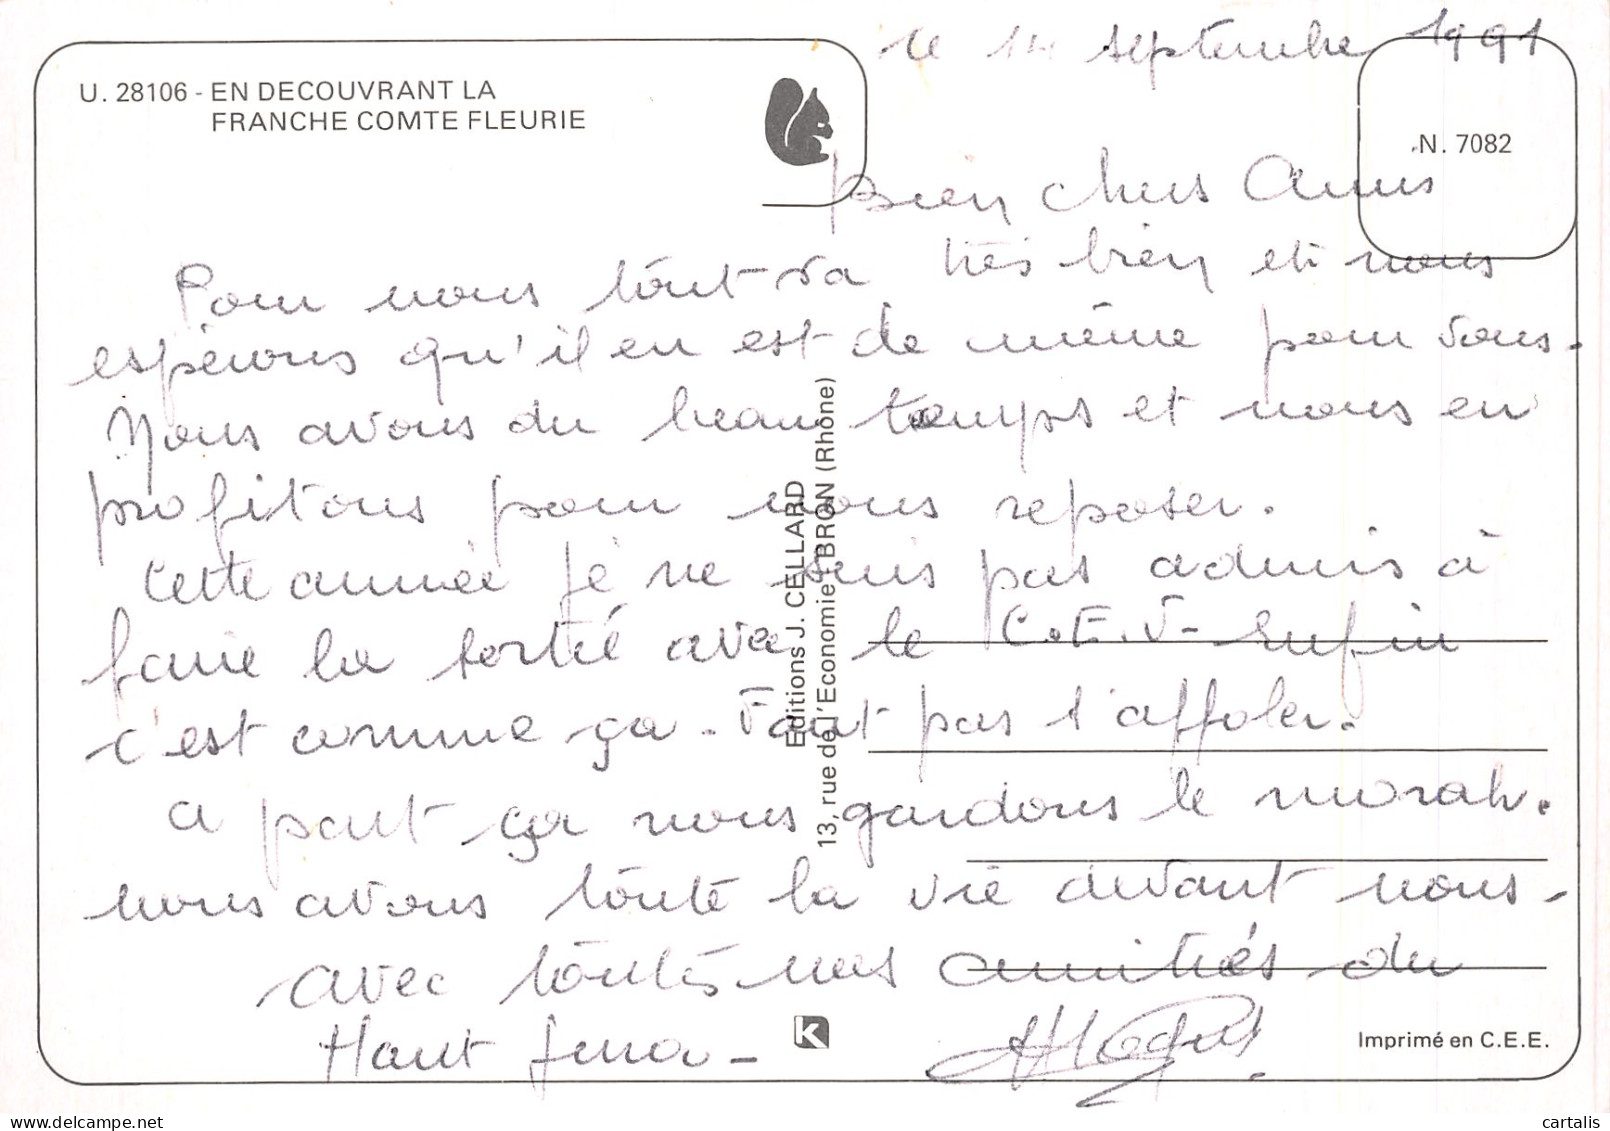 le 14 septembre 1991
U. 28106 - EN DECOUVRANT LA
FRANCHE COMTE FLEURIE
N. 7082
Bien chers Amis
Pour nous tout va très bien et nous
espérons qu'il en est de même pour vous.
Nous avons du beau temps et nous en
profitons pour nous reposer.
Cette année je ne suis pas admis à
faire la sortie avec le C.E.V- enfin
c'est comme ça. Faut pas s'affoler.
a part ça nous gardons le moral.
nous avons toute la vie devant nous-
avec toutes nos amitiés du
Haut Jura-
Editions J. CELLARD
13, rue de l'Economie BRON (Rhône)
K
Imprimé en C.E.E.
cartalis